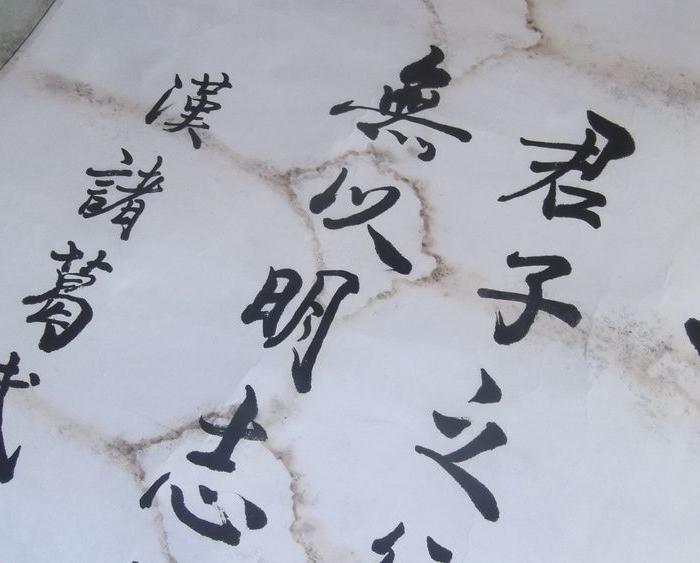 君子之
無以明志
漢諸葛武